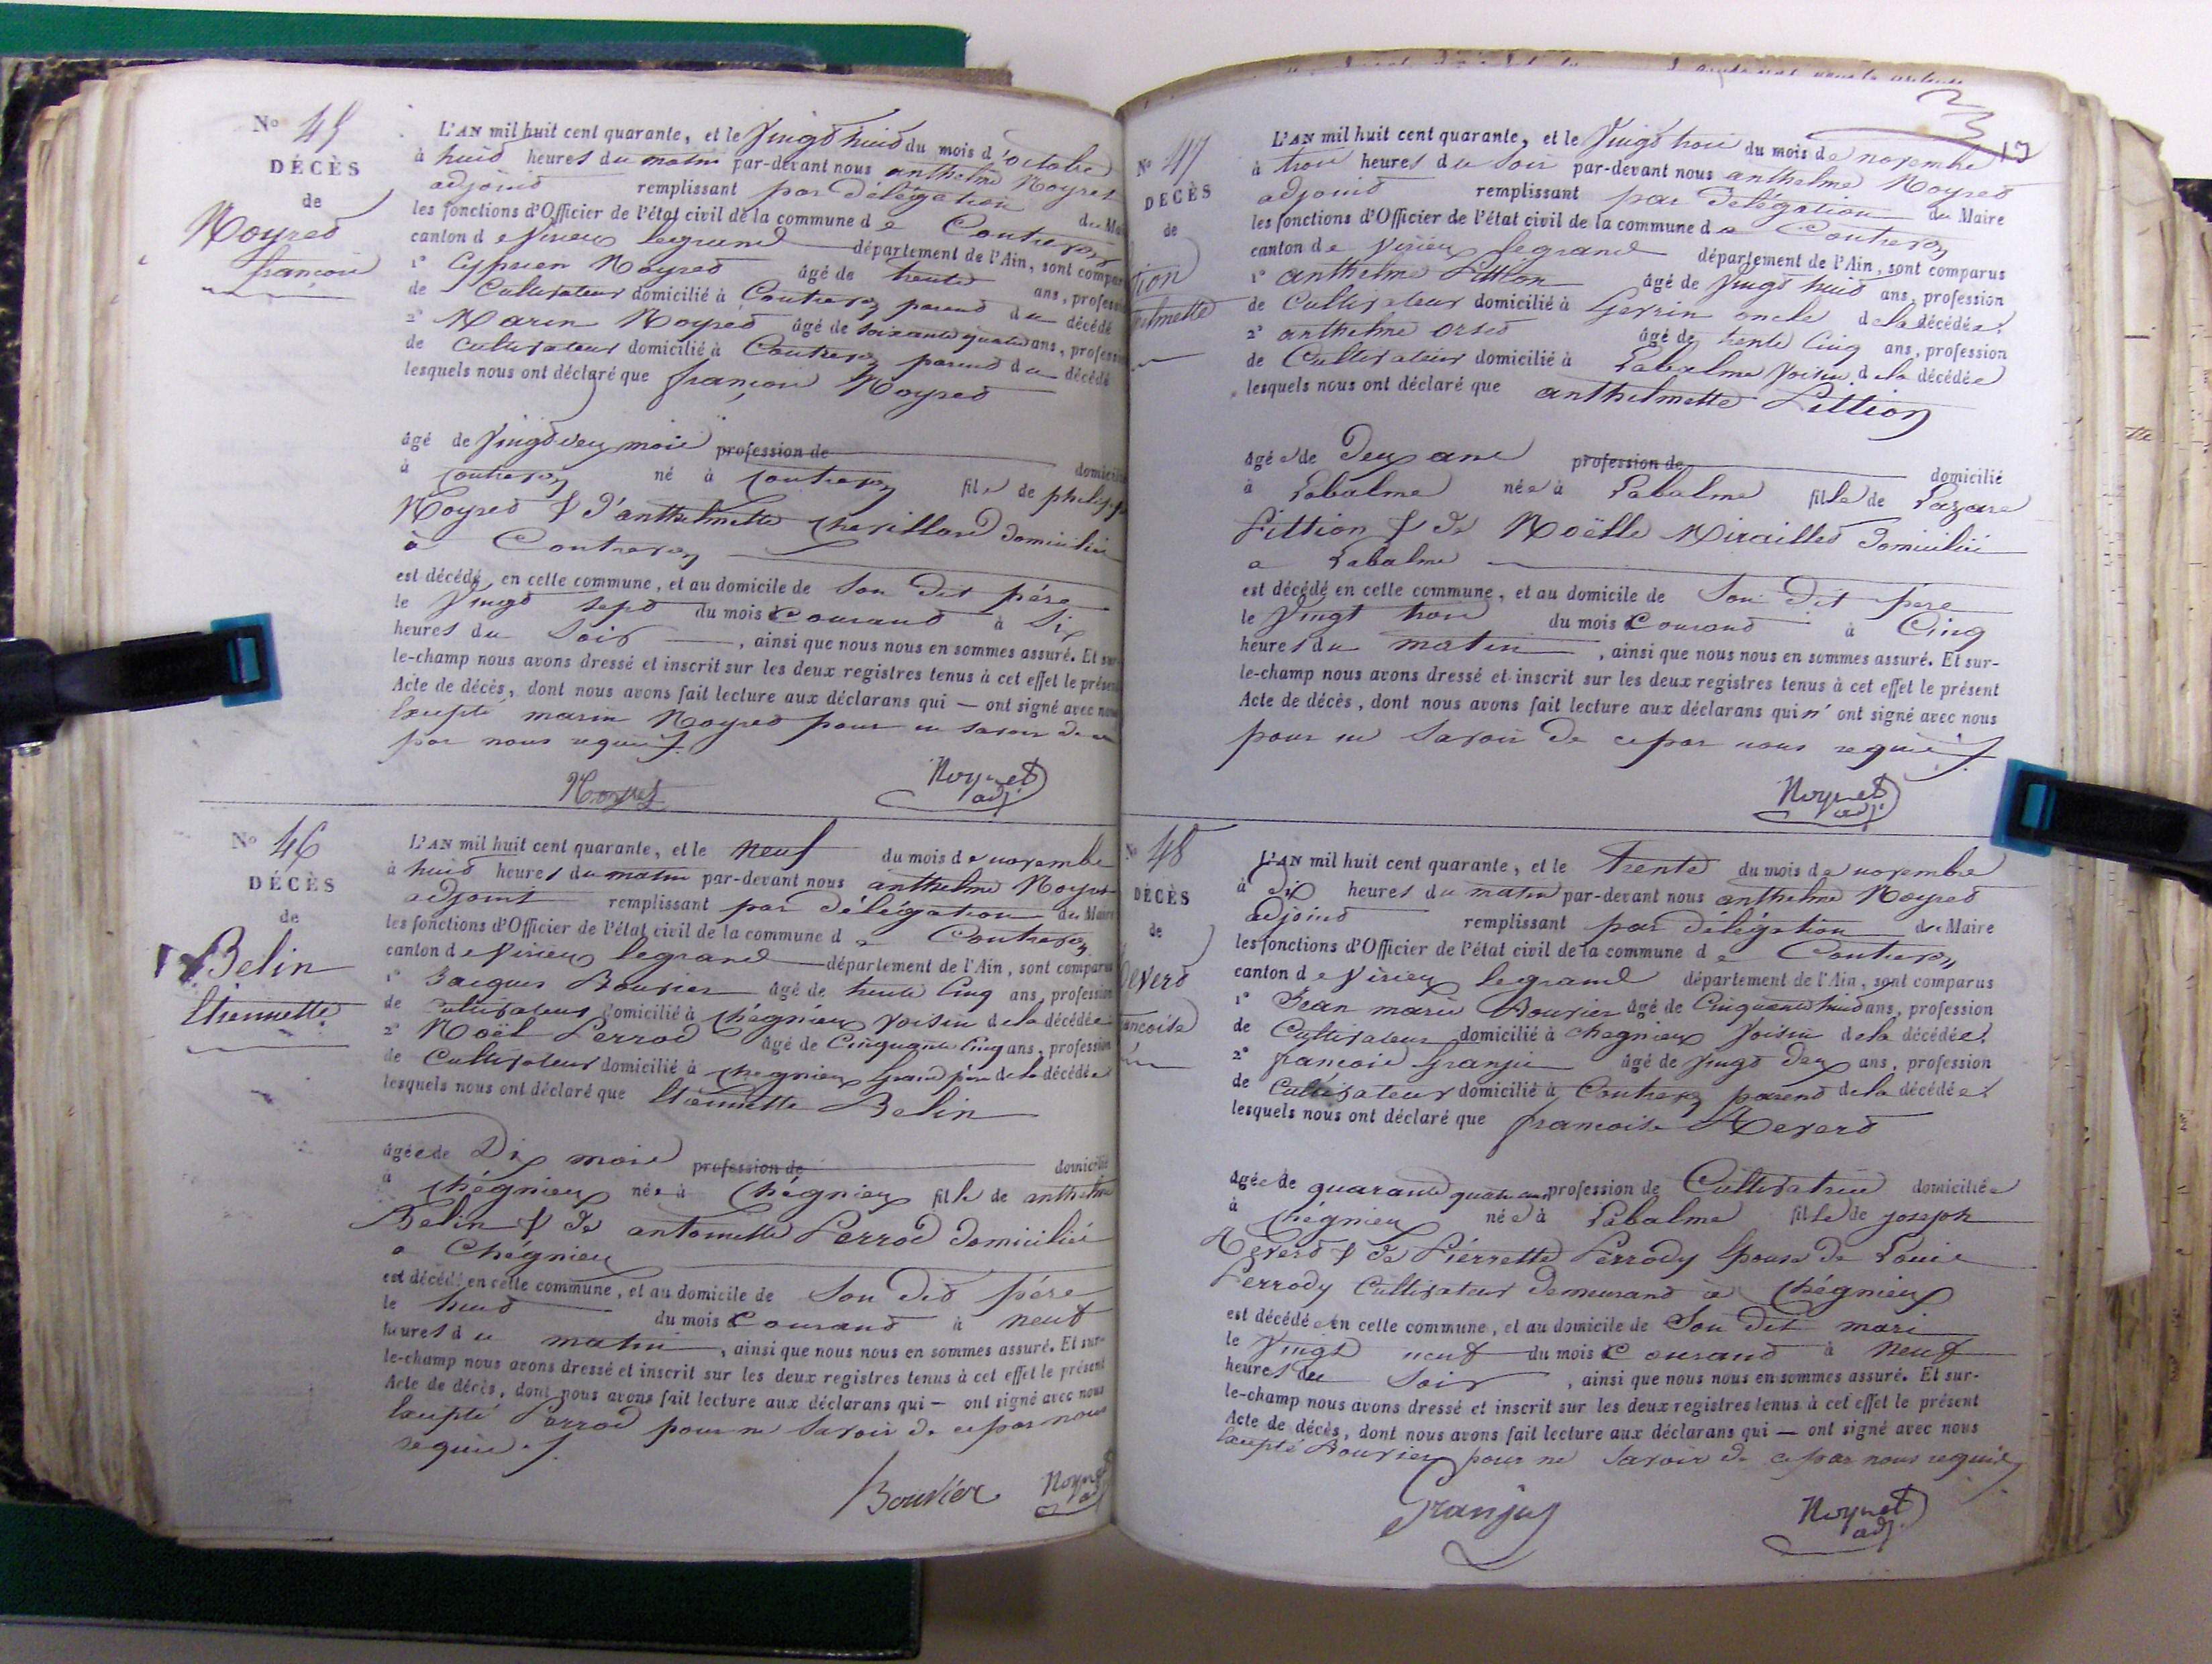 N° 45
DÉCÈS
de
Noyret
françois
L'AN mil huit cent quarante, et le Vingt huit du mois d'octobre
à huit heures du matin par-devant nous anthelme Noyret
adjoint remplissant par délégation du Ma
les fonctions d'Officier de l'état civil de la commune de Contrevoz
canton de Virieu legrand département de l'Ain, sont compar
1° Cyprien Noyret âgé de trente ans, profess
de Cultivateur domicilié à Contrevoz parent du décédé
2° Marin Noyret âgé de soixante quatre ans, profess
de Cultivateur domicilié à Contrevoz parent du décédé
lesquels nous ont déclaré que françois Noyret
âgé de Vingt deux mois profession de domicilié
à Contrevoz né à Contrevoz fils de philippe
Noyret & d'anthelmette Chevillard domiciliés
à Contrevoz
est décédé en cette commune, et au domicile de Son dit père
le Vingt sept du mois Courant à Six
heures du Soir, ainsi que nous nous en sommes assuré. Et sur-
le-champ nous avons dressé et inscrit sur les deux registres tenus à cet effet le présent
Acte de décès, dont nous avons fait lecture aux déclarans qui — ont signé avec nous
Excepté marin Noyret pour ne savoir de ce
par nous requis
Noyret Noyret adj.
N° 46
DÉCÈS
de
Belin
Etiennette
L'AN mil huit cent quarante, et le neuf du mois de novembre
à huit heures du matin par-devant nous anthelme Noyret
adjoint remplissant par délégation du Maire
les fonctions d'Officier de l'état civil de la commune de Contrevoz
canton de Virieu legrand département de l'Ain, sont comparus
1° Jacques Bouvier âgé de trente Cinq ans, profession
de Cultivateur domicilié à Chégnieu Voisin de la décédée
2° Noël Perrod âgé de Cinquante Cinq ans, profession
de Cultivateur domicilié à Chegnieu Grand père de la décédée
lesquels nous ont déclaré que Etiennette Belin
âgée de Dix mois profession de domicilié
à Chégnieu née à Chégnieu fille de anthelme
Belin & de antoinette Perrod domiciliés
a Chégnieu
est décédé en cette commune, et au domicile de Son dit père
le huit du mois Courant à neuf
heures du matin, ainsi que nous nous en sommes assuré. Et sur-
le-champ nous avons dressé et inscrit sur les deux registres tenus à cet effet le présent
Acte de décès, dont nous avons fait lecture aux déclarans qui — ont signé avec nous
Excepté Perrod pour ne Savoir de ce par nous
requis
Bouvier Noyret
N° 47
DÉCÈS
de
tion
elmette
L'AN mil huit cent quarante, et le Vingt trois du mois de novembre
à trois heures du Soir par-devant nous anthelme Noyret
adjoint remplissant par délégation du Maire
les fonctions d'Officier de l'état civil de la commune de Contrevoz
canton de Virieu legrand département de l'Ain, sont comparus
1° anthelme Littion âgé de Vingt huit ans, profession
de Cultivateur domicilié à Gevrin oncle de la décédée
2° anthelme orset âgé de trente Cinq ans, profession
de Cultivateur domicilié à Labalme Voisin de la décédée
lesquels nous ont déclaré que anthelmette Littion
âgée de Deux ans profession de domicilié
à Labalme née à Labalme fille de Lazare
Littion & de Noëlle Miraillet domiciliés
a Labalme
est décédé en cette commune, et au domicile de Son dit père
le Vingt trois du mois Courant à Cinq
heures du matin, ainsi que nous nous en sommes assuré. Et sur-
le-champ nous avons dressé et inscrit sur les deux registres tenus à cet effet le présent
Acte de décès, dont nous avons fait lecture aux déclarans qui n'ont signé avec nous
pour ne Savoir de ce par nous requis
Noyret adj.
N° 48
DÉCÈS
de
evert
ancoise
L'AN mil huit cent quarante, et le Trente du mois de novembre
à dix heures du matin par-devant nous anthelme Noyret
adjoint remplissant par délégation du Maire
les fonctions d'Officier de l'état civil de la commune de Contrevoz
canton de Virieu legrand département de l'Ain, sont comparus
1° Jean marie Bouvier âgé de Cinquante huit ans, profession
de Cultivateur domicilié à Chegnieu Voisin de la décédée
2° françois Granju âgé de Vingt deux ans, profession
de Cultivateur domicilié à Contrevoz parent de la décédée
lesquels nous ont déclaré que francoise Revert
âgée de quarante quatre ans profession de Cultivatrice domiciliée
à Chégnieu née à Labalme fille de joseph
Revert & de Pierrette Perrody Epouse de Louis
Perrody Cultivateur demeurant à Chégnieu
est décédée en cette commune, et au domicile de Son dit mari
le Vingt neuf du mois Courant à neuf
heures du Soir, ainsi que nous nous en sommes assuré. Et sur-
le-champ nous avons dressé et inscrit sur les deux registres tenus à cet effet le présent
Acte de décès, dont nous avons fait lecture aux déclarans qui — ont signé avec nous
Excepté Bouvier pour ne Savoir de ce par nous requis
Granju Noyret adj.